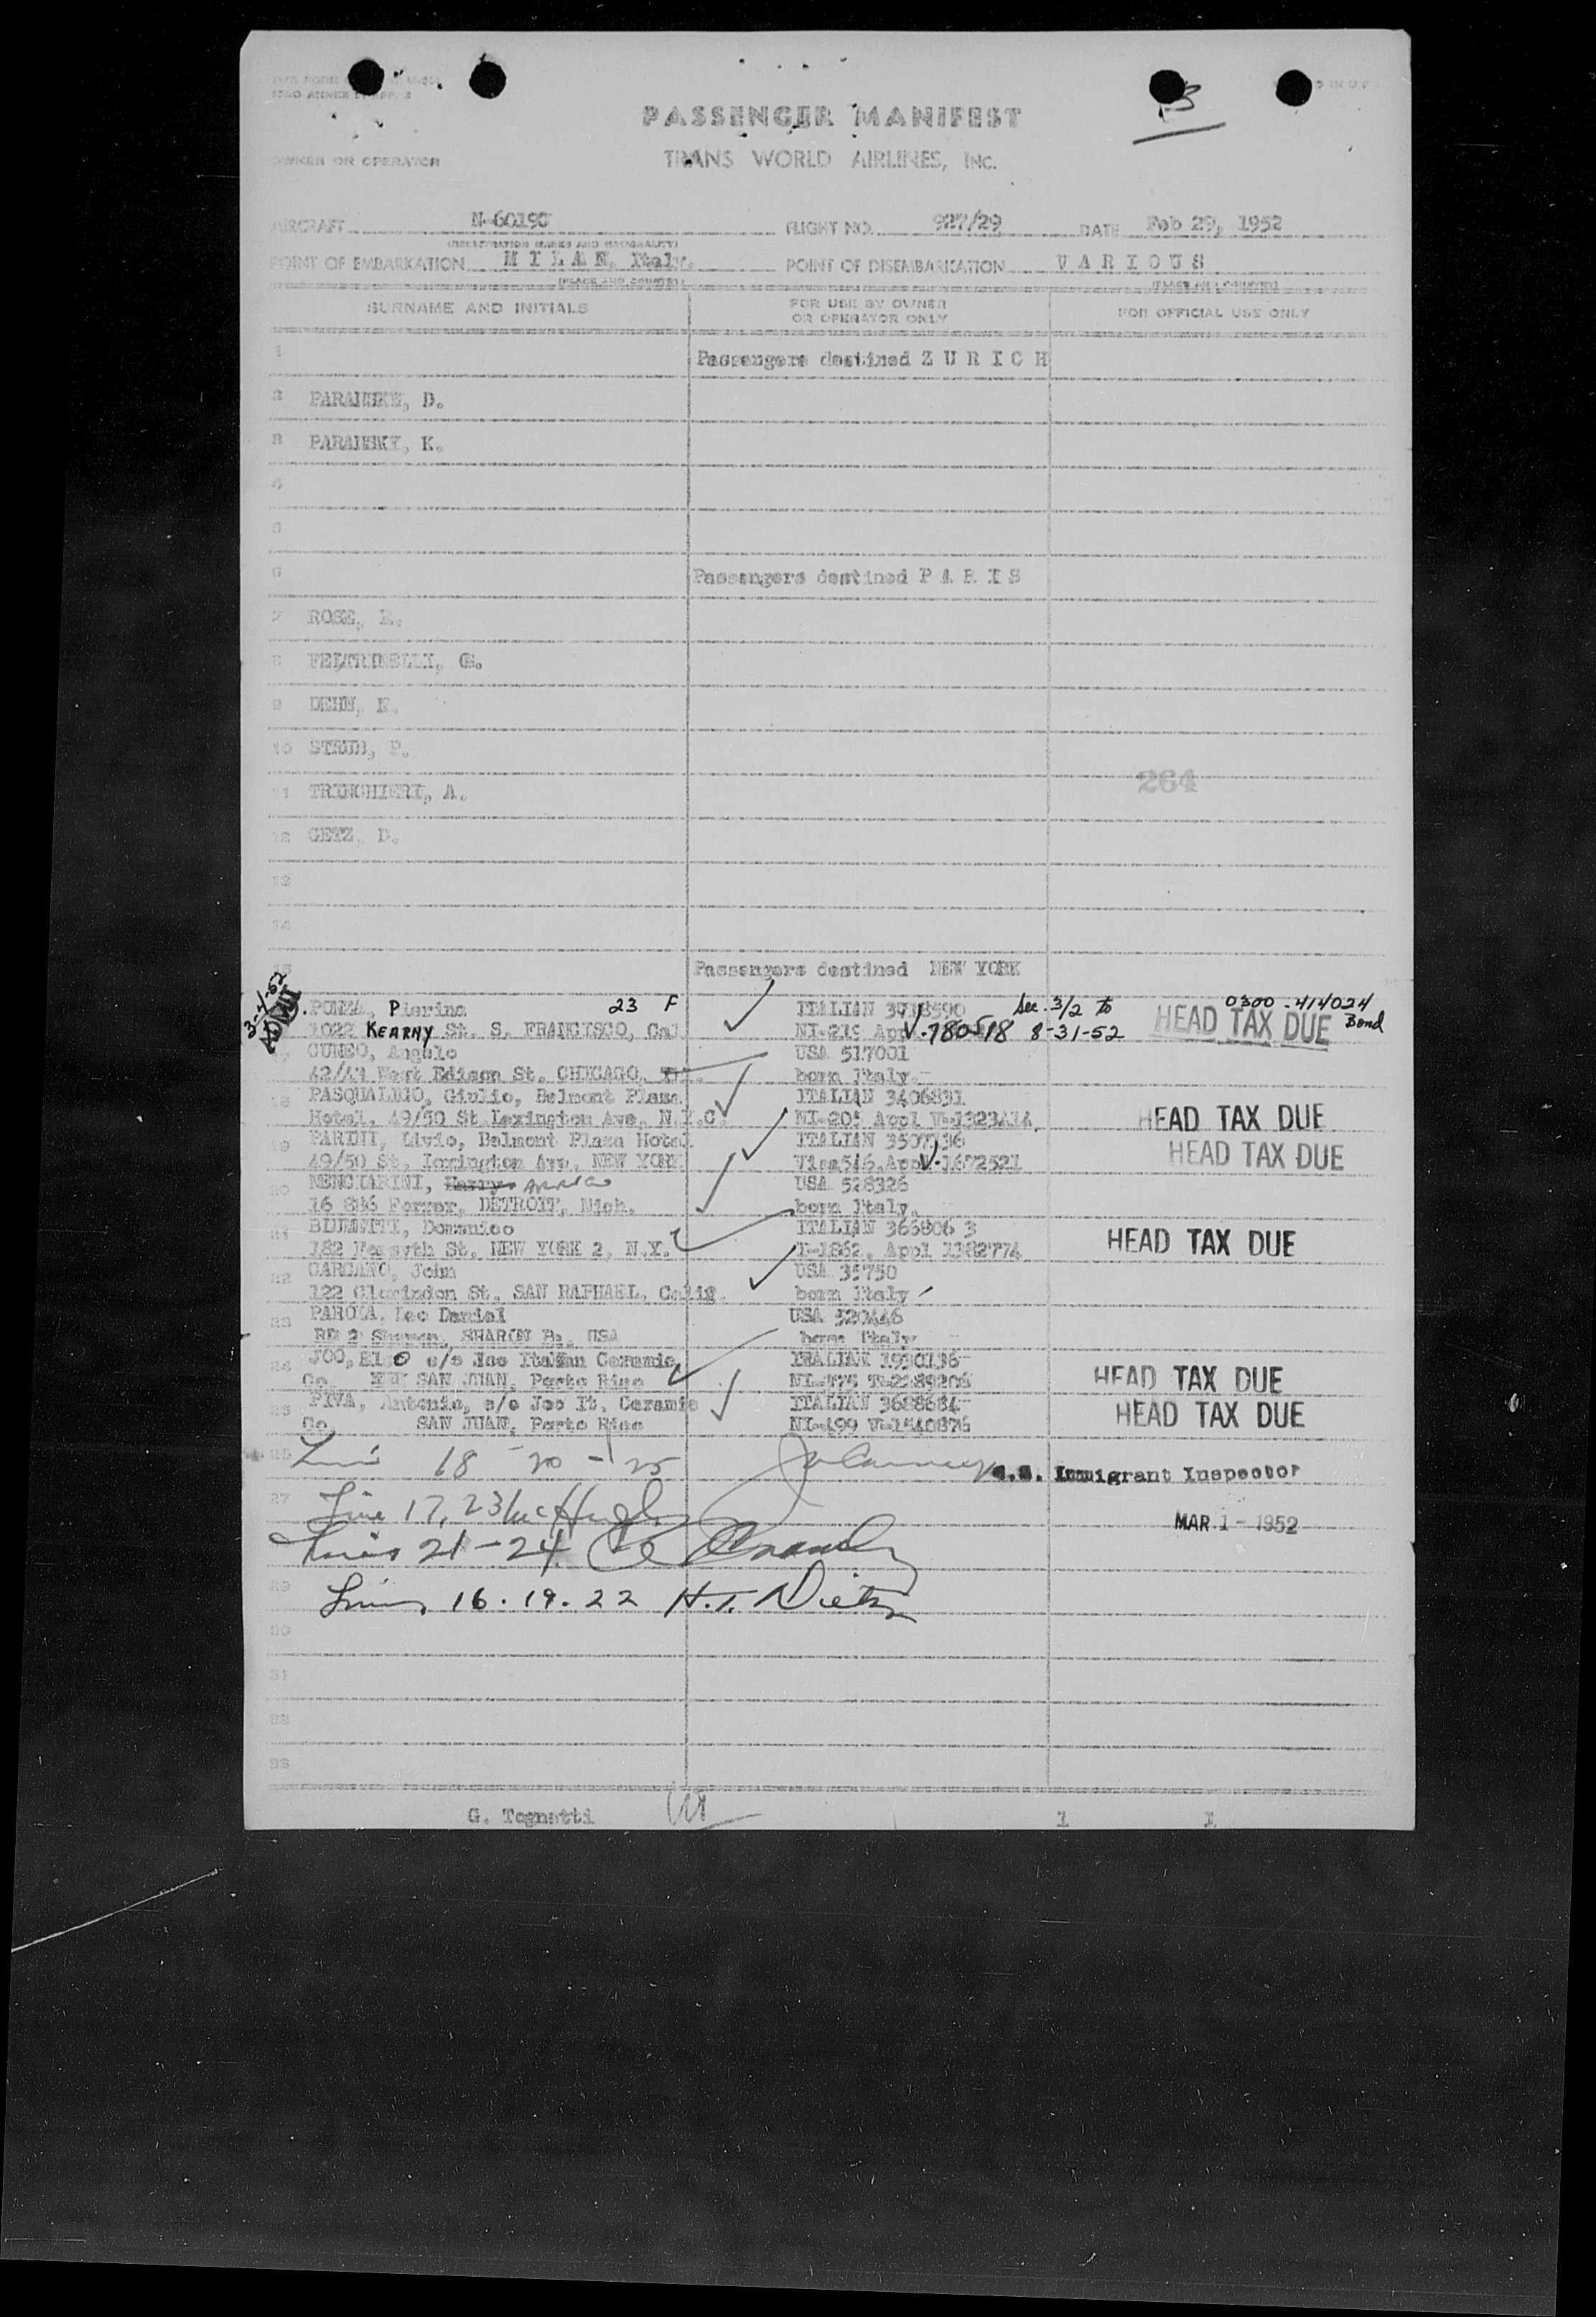 PASSENGER MANIFEST
OWNER OR OPERATOR TRANS WORLD AIRLINES, INC.
AIRCRAFT N-60190 FLIGHT NO. 927/29 DATE Feb 29, 1952
(REGISTRATION MARKS AND NATIONALITY)
POINT OF EMBARKATION MILAN, Italy. POINT OF DISEMBARKATION VARIOUS
(PLACE AND COUNTRY) (PLACE AND COUNTRY)
SURNAME AND INITIALS FOR USE BY OWNER OR OPERATOR ONLY FOR OFFICIAL USE ONLY
1 Passengers destined ZURICH
2 D.
3 K.
4
5
6 Passengers destined PARIS
7 ROSE,
8 FELTRINELLI, G.
9
10 STRUB, P.
264
11 TRINCHIERI, A.
12 GETZ, D.
13
14
15 Passengers destined NEW YORK
3-1-52 ADMIT Pierina 23 F ITALIAN 3718590 Sec. 3/2 to 0300-414024
1022 KEARNY St. S. FRANCISCO, Cal. NI-219 V.780518 8-31-52 HEAD TAX DUE Bond
CUNEO, Angelo USA 517001
42/43 West Edison St. CHICAGO, born Italy
18 PASQUALIGO, Giulio, Belmont Plaza ITALIAN 3406831
Hotel, 49/50 St Lexington Ave, N.Y.C. NI-205 Appl HEAD TAX DUE
19 PARINI, Livio, Belmont Plaza Hotel ITALIAN 3507136
49/50 St, Lexington Ave, NEW YORK Visa 546, Appl V-1672521 HEAD TAX DUE
20 MENCIARINI, USA 528326
16 886 Forrer, DETROIT, Mich. born Italy.
21 Domenico ITALIAN 366806 3
182 Forsyth St. NEW YORK 2, N.Y. I-1862, Appl 1382774 HEAD TAX DUE
22 CARCANO, John USA 35750
122 Clorindon St. SAN RAPHAEL, Calif. born Italy
23 PAROLA, Leo Daniel USA 520446
RD 2 SHARON Pa, USA born Italy
24 JOO, Elio c/o Joo Italian Ceramic ITALIAN 1990136
Co. SAN JUAN, Porto Rico HEAD TAX DUE
25 PIVA, Antonio, c/o Joo It. Ceramic ITALIAN 3688684
Co. SAN JUAN, Porto Rico NI-499 V-1540876 HEAD TAX DUE
26 18 - 20 - 25 U.S. Immigrant Inspector
27 Line 17, 23 McHugh MAR 1 - 1952
Lines 21-24
29 Lines 16. 19. 22 H.T.
30
31
32
33
G. Tognetti 1 1